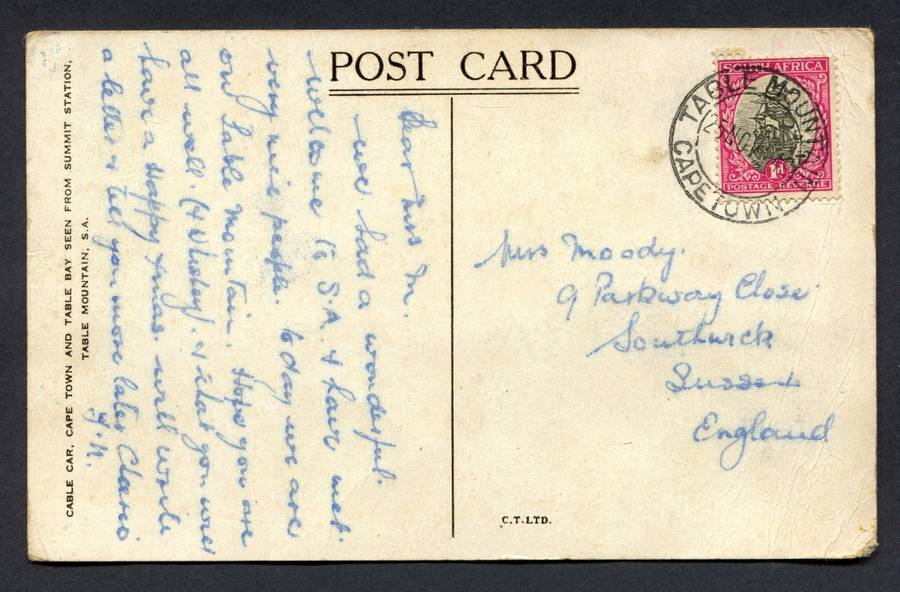 POST CARD
Dear Mrs M.
we had a wonderful
welcome to S.A. & have met
very nice people. today we are
on Table Mountain. Hope you are
all well. (& Whisky). & that you will
have a Happy Xmas. will write
a letter & tell you more later Cheerio
CABLE CAR, CAPE TOWN AND TABLE BAY SEEN FROM SUMMIT STATION,
TABLE MOUNTAIN, S.A.
SOUTH AFRICA
1d
POSTAGE-REVENUE
TABLE MOUNTAIN
CAPETOWN
Mrs Moody.
9 Parkway Close
Southwick
Sussex
England
C.T.LTD.